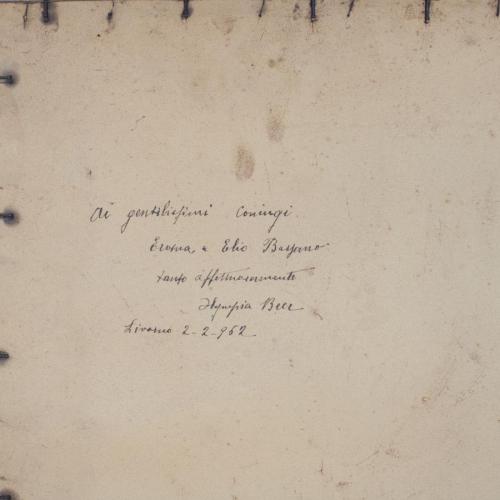 Ai gentilissimi Coniugi
e Elio Bassano
tanto affettuosamente
Beer
Livorno 2-2-962